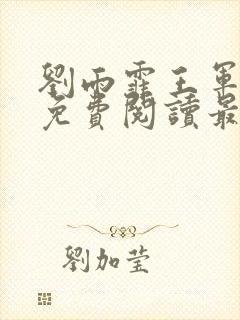 劉雨霏王軍
免費閱讀最
劉加瑩